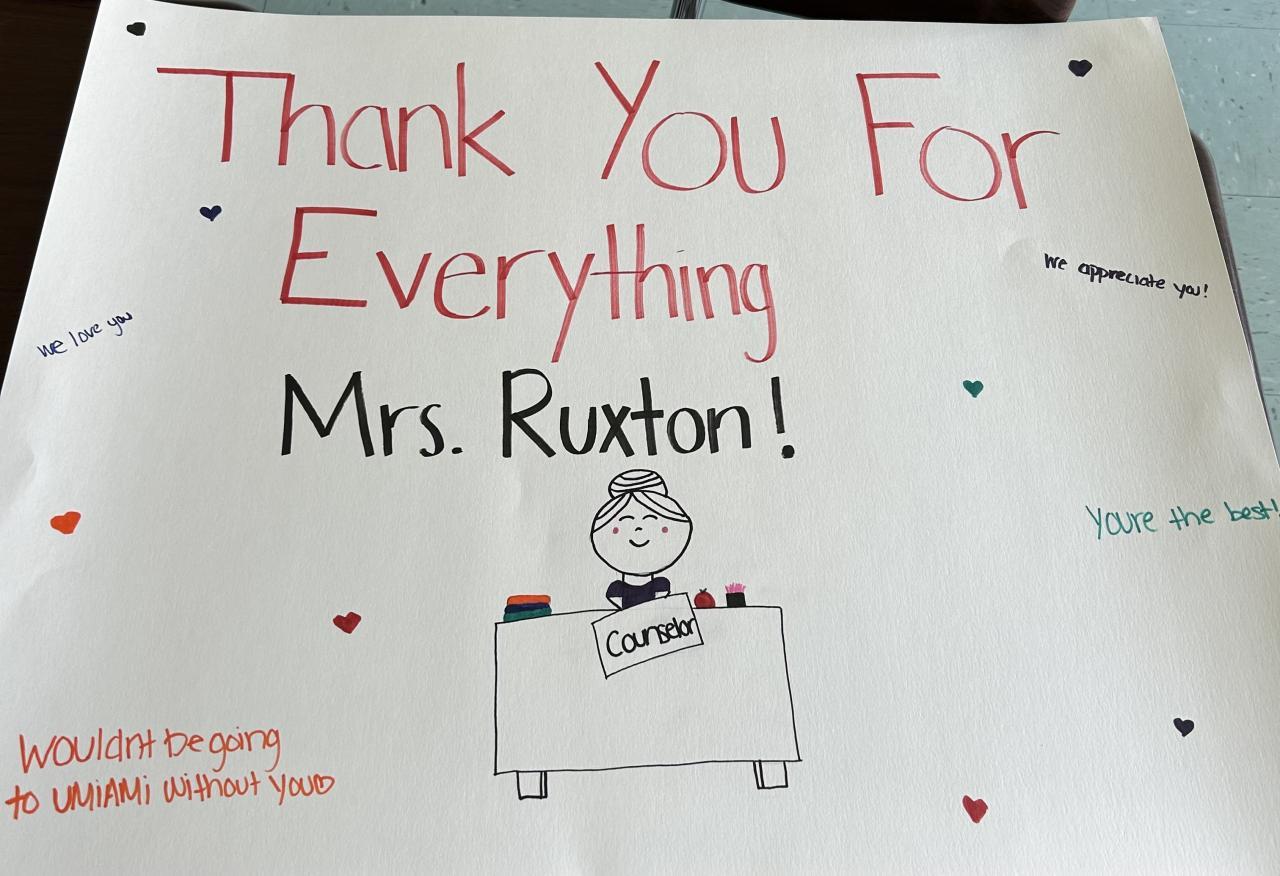 Thank You For
Everything
We appreciate you!
we love you
Mrs. Ruxton!
Youre the best!
Counselor
Wouldnt be going
to UMiAMi without you♡